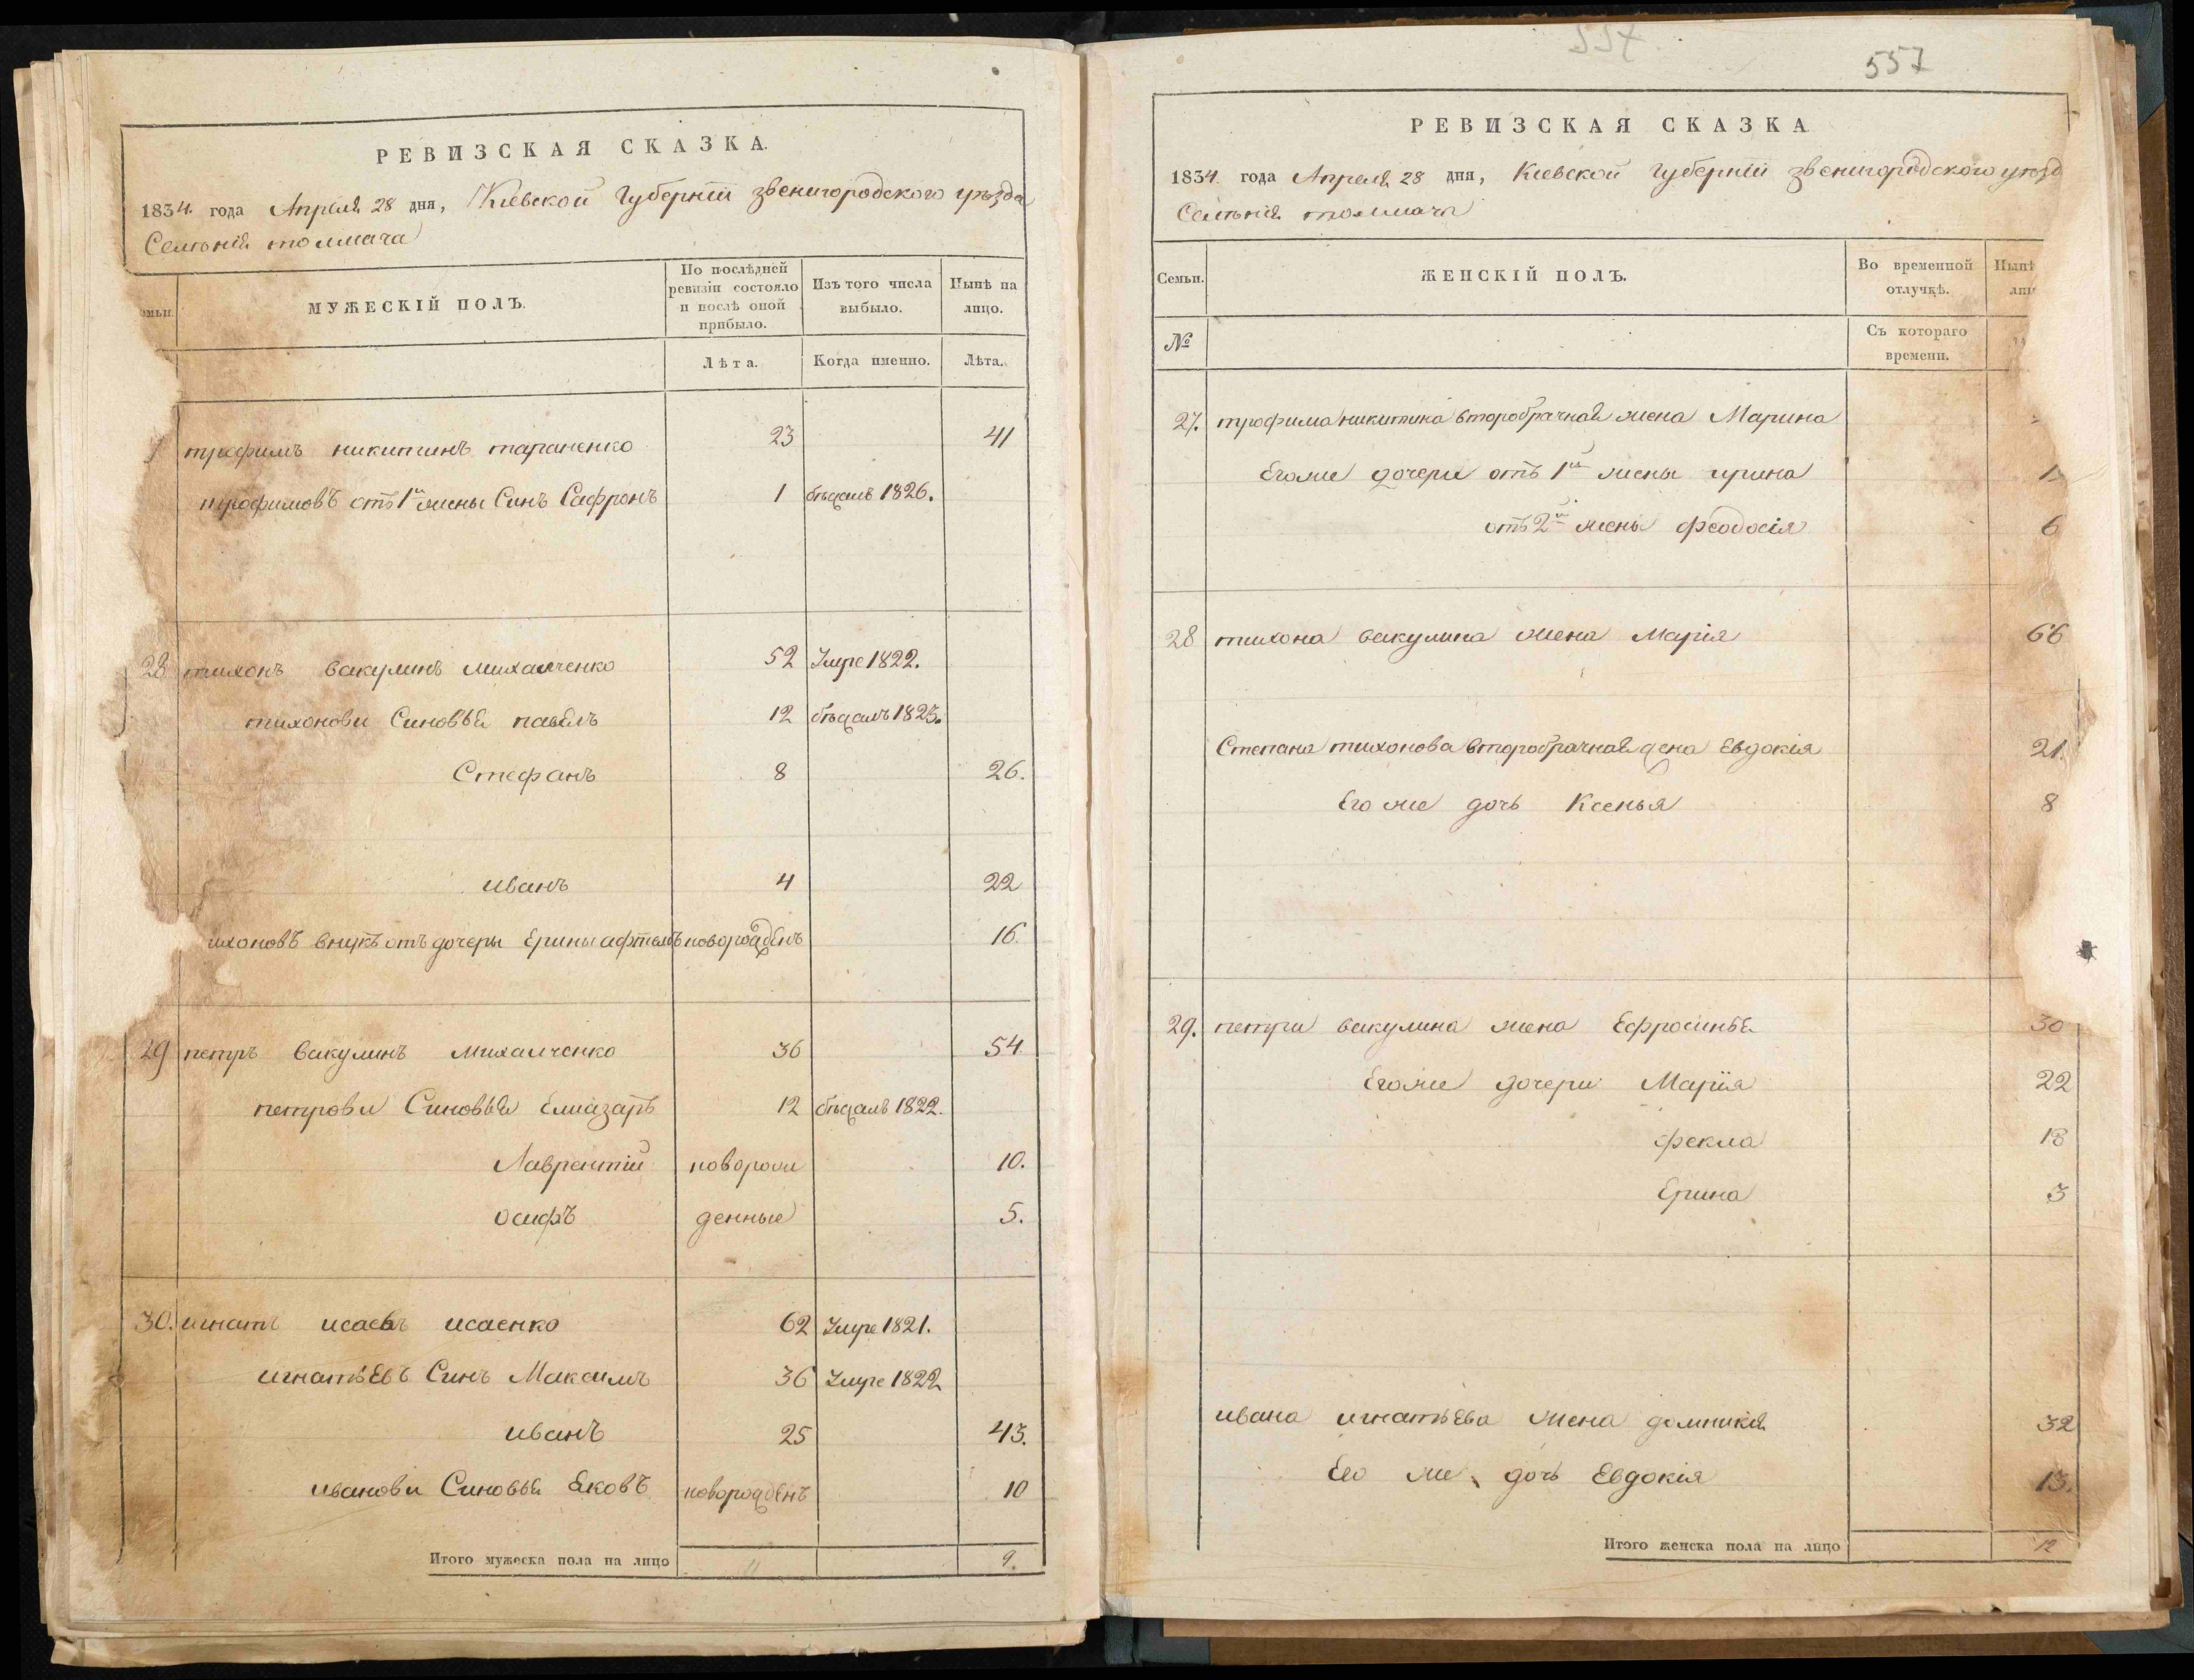 РЕВИЗСКАЯ СКАЗКА.
1834. года Апреля 28 дня, Кіевской Губерніи звенигородского уѣзда
Селенія толмача
МУЖЕСКІЙ ПОЛЪ.
По послѣдней ревизіи состояло и послѣ оной прибыло.
Изъ того числа выбыло.
Нынѣ на лицо.
Лѣта.
Когда именно.
Лѣта.
трофимъ никитинъ тараненко 23 41
трофимовъ отъ 1й жены Синъ Сафронъ 1 бѣжалъ 1826.
28 тихонъ вакулинъ михалченко 52 Умре 1822.
тихонови Синовья павелъ 12 бѣжалъ 1823.
Стефанъ 8 26.
иванъ 4 22
ихоновъ внукъ отъ дочеры Ерины новорожденъ 16.
29 петръ вакулинъ михалченко 36 54
петрови Синовья Елиазаръ 12 бѣжалъ 1822.
Лаврентій новорож 10.
осифъ денные 5.
30. игнатъ исаевъ исаенко 62 Умре 1821.
игнатьевъ Синъ Максимъ 36 Умре 1822
иванъ 25 43.
иванови Синовья Яковъ новорожденъ 10
Итого мужеска пола на лицо 11 9.
557
РЕВИЗСКАЯ СКАЗКА
1834. года Апреля 28 дня, Кіевской Губерніи звенигородского уѣзд
Селенія толмача
Семьи.
ЖЕНСКІЙ ПОЛЪ.
Во временной отлучкѣ.
Нынѣ
№
Съ котораго времени.
27. трофима никитина второбрачная жена Марина
Егоже дочери отъ 1й жены ирина
отъ 2й жены феодосія 6
28 тихона вакулина жена Марія 66
Степана тихонова второбрачная жена Евдокія 21.
Его же дочь Ксенья 8
29. петра вакулина жена Ефросинья 30
Егоже дочери Марія 22
фекла 18
Ерина 3
ивана игнатьева жена домникія 32
Его же дочь Евдокія 13.
Итого женска пола на лицо 12